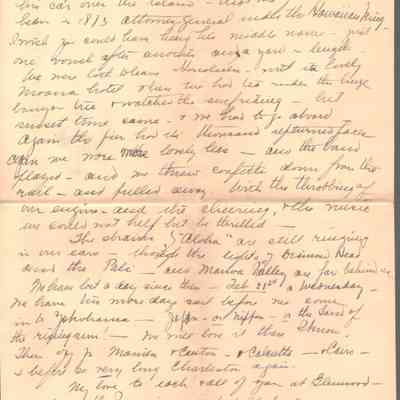 his car over the island -
been in 1893 attorney general under the Hawaiian King.
I wish you could hear his middle name - just
one vowel after another and a
We were loth to leave Honolulu - with its lovely
Moana hotel where we had tea under the huge
banyan tree & watched the surfriding - but
sunset time came - & we had to go aboard
again the pier had its thousand upturned faces
again we wore lovely leis - and the band
played - and we threw confetti down from the
rail - and pulled away. With the throbbing of
our engines - and the cheering, & the music
we could not help but be thrilled -
The strands of "Aloha" are still ringing
in our ears - though the lights of Diamond Head
and the Pali - and Manoa Valley are far behind us
We have lost a day since then - Feb 21st a Wednesday -
We have six more days sail before we come
into Yokohama - Japan - or Nippon - or the Land of
the rising sun! - We will love it there I know.
Then of to Manila & Canton - & Calcutta - & Cairo -
& before so very long Charleston again.
My love to each & all of you at Glenwood -